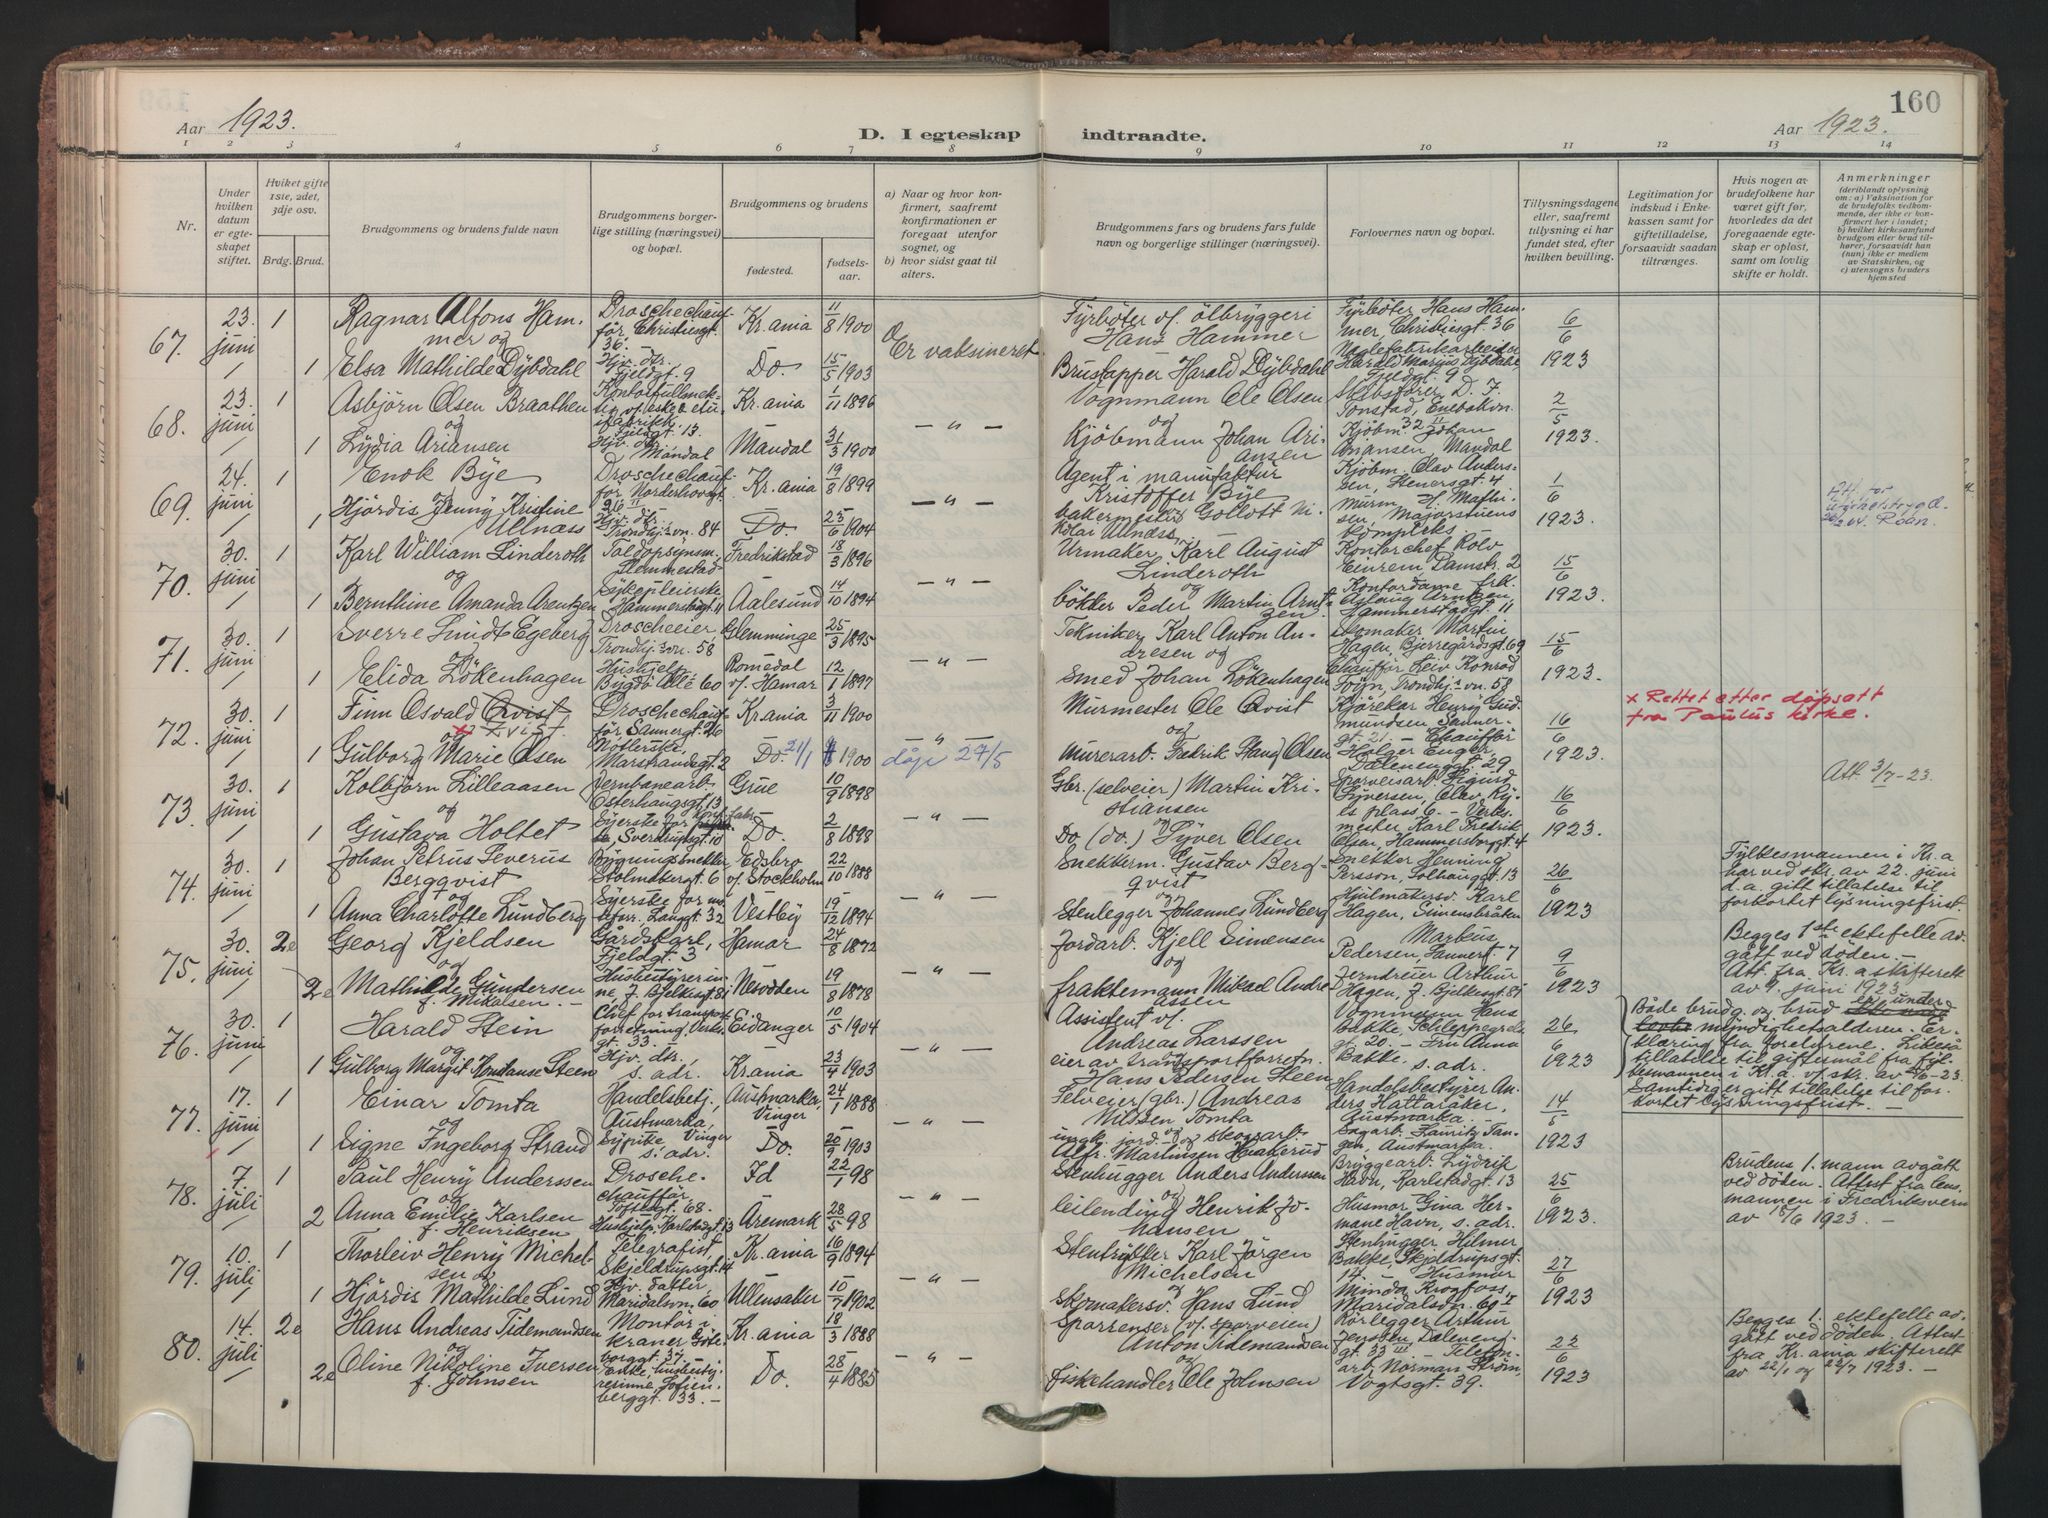 160
Aar 1923.
D. I egteskap indtraadte.
Aar 1923.
1 2 3 4 5 6 7 8 9 10 11 12 13 14
Nr.
Under hvilken datum er egteskapet stiftet.
Hviket gifte 1ste, 2det, 3dje osv.
Brdg. Brud.
Brudgommens og brudens fulde navn
Brudgommens borgerlige stilling (næringsvei) og bopæl.
Brudgommens og brudens
fødested.
fødselsaar.
a) Naar og hvor konfirmert, saafremt konfirmationen er foregaat utenfor sognet, og
b) hvor sidst gaat til alters.
Brudgommens fars og brudens fars fulde navn og borgerlige stillinger (næringsvei).
Forlovernes navn og bopæl.
Tillysningsdagene eller, saafremt tillysning ei har fundet sted, efter hvilken bevilling.
Legitimation for indskud i Enkekassen samt for giftetilladelse, forsaavidt saadan tiltrænges.
Hvis nogen av brudefolkene har været gift før, hvorledes da det foregaaende egteskap er opløst, samt om lovlig skifte er holdt.
Anmerkninger
(deriblandt oplysning om: a) Vaksination for de brudefolks vedkommende, der ikke er konfirmert her i landet; b) hvilket kirkesamfund brudgom eller brud tilhører, forsaavidt han (hun) ikke er medlem av Statskirken, og c) utensogns bruders hjemsted
67. 23. juni 1 Ragnar Alfons Hammer og
Droschechaufför Christiesgt. 36.
Kr.ania 11/8 1900
Er vaksineret
Fyrböter v/. ölbryggeri Hans Hammer
Fyrböter Hans Hammer, Christiesgt. 36
6/6 1923
1 Elsa Mathilde Dybdahl
Hjv. dtr. Fjeldgt. 9
Do. 15/5 1903
Brustapper Harald Dybdahl
Fjeldgt. 9
68. 23. juni 1 Asbjörn Olsen Braathen og
Fjeldgt. 13.
Kr.ania 1/11 1896
— " —
Vognmann Ole Olsen og
2/5 1923.
1 Lydia Ariansen
Mandal
Mandal 31/3 1900
Kjöbmann Johan Ariansen
Kjöbm. Johan Ariansen, Mandal
69. 24. juni 1 Enok Bye
Droschechaufför Norderhovgt. 26 II
Kr.ania 19/8 1899
— " —
Agent i manufaktur Kristoffer Bye
Kjöbm. Olav Anderssen, Henersgt. 4
1/6 1923.
1 Hjördis Jenny Kristine Ullnæss
Trondhj.vn. 84
Do. 25/6 1904
bakermester
Murm. H. Mathisen, Majorstuens kompleks.
70. 30. juni 1 Karl William Linderoth og
Toldopsynsm. Slemmestad
Fredrikstad 18/3 1896
— " —
Urmaker, Karl August Linderoth og
Kontorchef Rolv Einrem Damstr. 2
15/6 1923.
1 Bernthine Amanda Arentzen
Sykepleierske Hammersbgt. 11
Aalesund 14/10 1894
bökker Peder Martin Arntzen
Kontordame frk. Aslaug Arntzen, Hammerstadgt. 11
71. 30. juni 1 Sverre Lundt Egeberg
Droscheeier, Trondhj.vn. 58
Glemminge 25/3 1895
— " —
Tekniker Karl Anton Andresen og
Skomaker Martin Hagen, Bjerregårdsgt. 69
15/6 1923.
1 Elida Lökenhagen
Hushjelp Bygdö Allé 60
Romedal v/. Hamar 12/1 1897
Smed Johan Lökenhagen
Chaufför Leiv Konrad Föyn, Trondhj.vn. 58
72. 30. juni 1 Finn Osvald Qvist
x Kvist.
og
Droschechaufför Sannergt. 26
Kr.ania 3/11 1900
— " —
Murmester Ole Qvist og
Kjörekar Henry Gudmundsen Sannergt. 21. – Chaufför
16/6 1923.
x Rettet etter dåpsatt fra Paulus kirke.
1 Gulborg Marie Olsen
Marstrandsgt. 2
Do. 21/1 1900
döp 27/5
Murerarb. Fredrik Olsen
Holger Enger, Dælenenggt. 29
73. 30. juni 1 Kolbjörn Lilleaasen og
Jernbanearb. Österhaugsgt. 13
Grue 10/9 1898
— " —
Gbr. (selveier) Martin Kristiansen og
Sporveisarb. Sigurd Syversen, Olav Ryes plass 6. – Verksmester, Karl Fredrik Olsen, Hammersborggt. 4
16/6 1923.
Att 3/7-23.
1 Gustava Holtet
Do. 2/8 1898
Do (do.) Syver Olsen
74. 30. juni 1 Johan Petrus Severus Bergqvist og
Bygningssnekker Stolmakergt. 6
Edsbro v/. Stockholm 22/10 1888
— " —
Snekkerm. Gustav Bergqvist og
Snekker Henning Persson, Solhauggt. 13
26/6 1923
Fylkesmannen i Kr.a har ved skr. av 22. juni d.a. gitt tillatelse til forkortet lysningsfrist. –
1 Anna Charlotte Lundberg
Langgt. 32
Vestby 19/12 1894
Stenlegger Johannes Lundberg
Hjulmakersv. Karl Hagen, Simensbråten
75. 30. juni 2e Georg Kjeldsen og
Gårdskarl, Fjeldgt. 3
Hamar 24/8 1872
— " —
Jordarb. Kjell Simensen og
Markus Pedersen, Sannergt. 7
9/6 1923
Begges 1ste ektefelle avgått ved döden. –
Att. fra Kr.a skifterett av 9. juni 1923.
2e Mathilde Gundersen f. Mikalsen. –
Husbestyrerinne, J. Bjelkesgt. 81
Nesodden 19/8 1878
fraktemann Mikael Andreassen
Jerndreier Arthur Hagen, J. Bjelkesgt. 81
76. 30. juni 1 Harald Stein og
Chef for transportforretning, Verksgt. 33.
Eidanger 10/5 1904
— " —
Assistent v/. Andreas Larssen
Vognmann Hans Bakke, Schleppegrelsgt. 20. – Fru Anna Bakke, s. adr.
26/6 1923
Både brudg. og brud er under myndighetsalderen. Erklæring fra foreldrene. Likeså tillatelse til giftesmål fra fylkesmannen i Kr.a. v/. skr. av
Samtidig er gitt tillatelse til forkortet lysningsfrist. –
1 Gulborg Margit Konstanse Steen
Hjv. dtr., s. adr.
Kr.ania 23/4 1903
eier av transportforretn. Hans Pedersen Steen
77. 17. juni 1 Einar Tomta og
Handelsbetj., Austmarka,
Austmarka, Vinger 24/1 1888
— " —
Selveier (gbr.) Andreas Nilssen Tomta og
Handelsbestyrer Anders Hattaråker, Austmarka. –
14/5 1923
1 Signe Ingeborg Strand
Sypike, Vinger s. adr.
Do. 20/9 1903
jord. og skogsarb. Alfr. Martinsen
Sagarb. Lauritz Tangen, Austmarka.
78. 7. juli 1 Paul Henry Anderssen og
Droschechaufför, Toftesgt. 68.
Id 22/1 98
— " —
Stenhugger Anders Anderssen og
Bryggearb. Lydrik Havn, Karlstadgt. 13
25/6 1923.
Brudens 1. mann avgått ved döden. Attest fra lensmannen i Fredriksvern av 18/6 1923. –
2 Anna Emilie Karlsen f. Henriksen
Hushjelp, Karlstadgt. 13
Aremark 28/5 98
leilending Henrik Johansen
Husmor Gina Hermane Havn, s. adr.
79. 10. juli 1 Thorleiv Henry Michelsen og
Telegrafist, Skjeldrupsgt. 14
Kr.ania 16/9 1894
— " —
Karl Jörgen Michelsen og
Stenhugger Hilmer Bakke, Skjeldrupsgt. 14. – Husmor
27/6 1923
1 Hjördis Mathilde Lund
Maridalsvn. 60
Ullensaker 10/7 1902
Skomakersv. Hans Lund
Minda Krogfoss, Maridalsvn. 60 II
80. 14. juli 2e Hans Andreas Tidemandsen og
Montör i kraner Göteborggt. 34
Kr.ania 18/3 1888
— " —
Sporrenser (v/. sporveien) Anton Tidemandsen og
Rörlegger Arthur Jenssen Dælenenggt. 33 III – Telefonarb. Norman Ström, Vogtsgt. 39.
22/6 1923
Begges 1. ektefelle avgått ved döden. Attest fra Kr.ania skifterett av 22/1 og 22/7 1923. –
2e Oline Nikoline Iversen f. Johnsen
Sofienberggt. 33. –
Do. 28/4 1885
fiskehandler Ole Johnsen